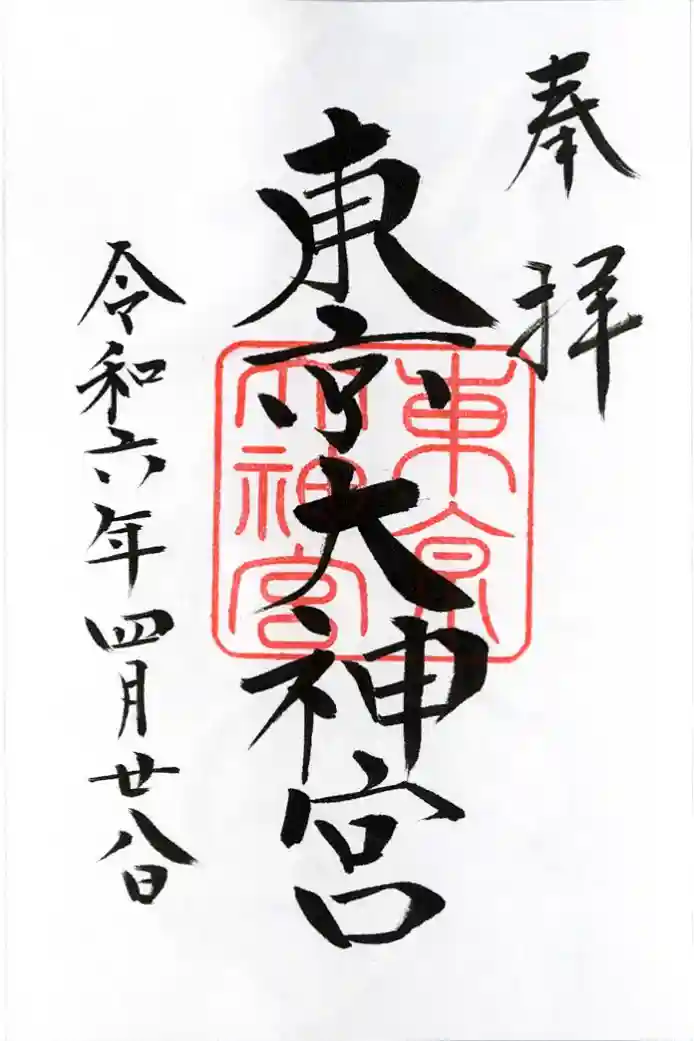 奉拝
東京大神宮
東京
大神宮
令和六年四月廿八日